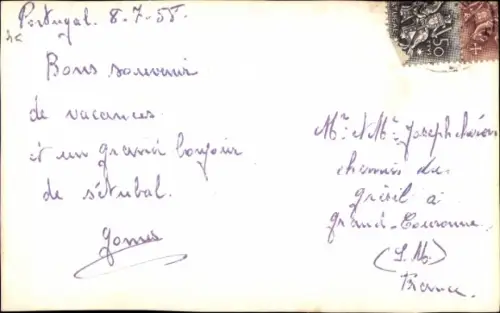 Portugal. 8-7-55.
Bons souvenir
de vacances
et un grand bonjour
de sétubal.
Gomes
Mr et Me Joseph
chemin du
Grésil a
Grand-Couronne
(S.M.)
France.
50